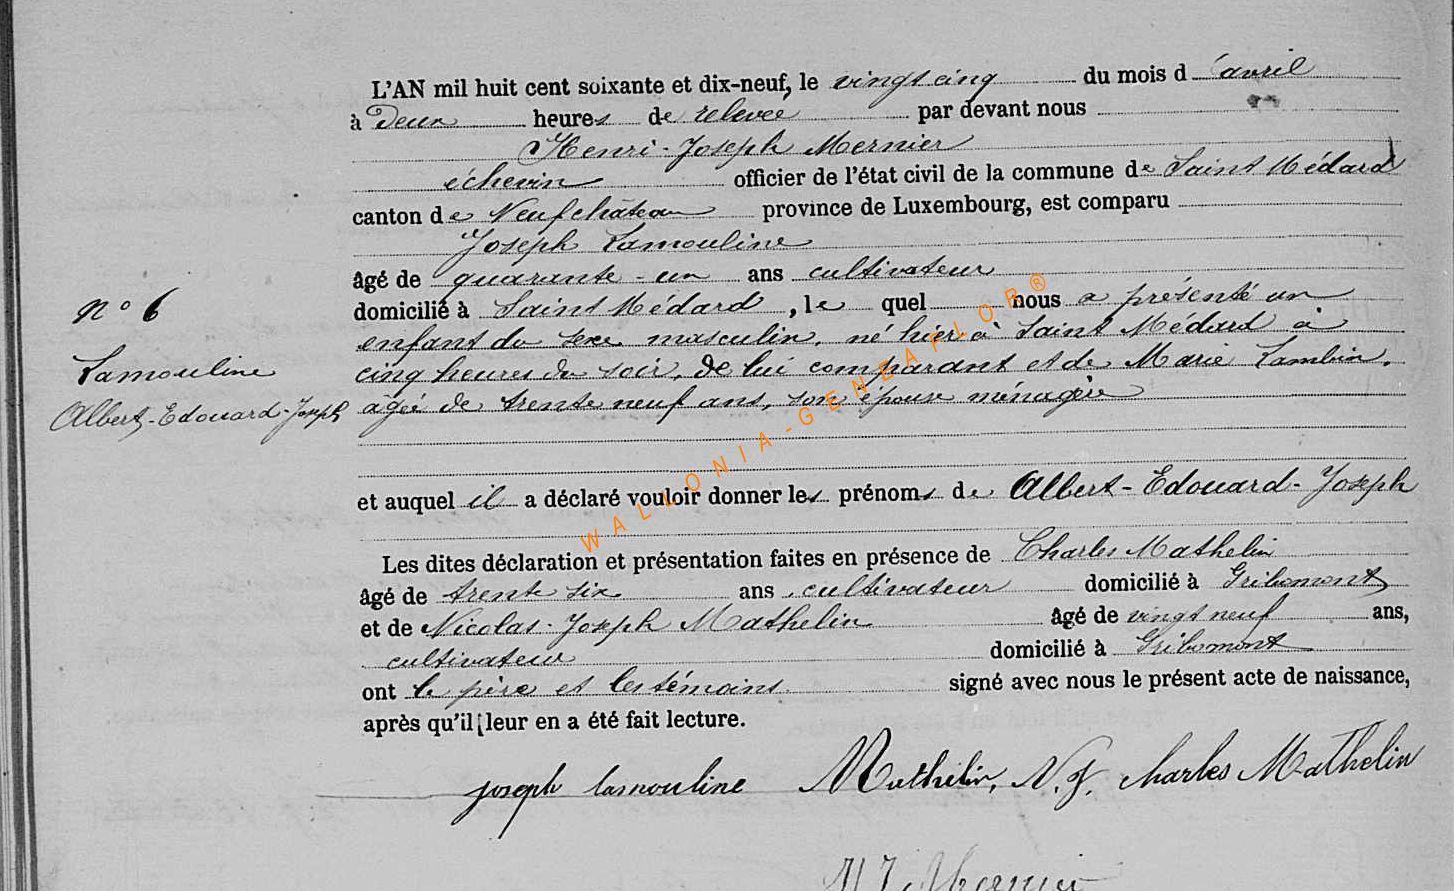 L'AN mil huit cent soixante et dix-neuf, le vingt cinq du mois d'avril
à Deux heures de relevée par devant nous
Henri-Joseph Mernier
échevin officier de l'état civil de la commune de Saint Médard
canton de Neufchâteau province de Luxembourg, est comparu
Joseph Lamouline
âgé de quarante-un ans cultivateur
domicilié à Saint Médard, le quel nous a présenté un
enfant du sexe masculin, né hier à Saint Médard à
cinq heures du soir, de lui comparant et de Marie Lambin,
âgée de trente neuf ans, son épouse ménagère
N° 6
Lamouline
Albert-Edouard-Joseph
et auquel il a déclaré vouloir donner les prénoms de Albert-Edouard-Joseph
Les dites déclaration et présentation faites en présence de Charles Mathelin
âgé de trente six ans, cultivateur domicilié à Gribomont
et de Nicolas-Joseph Mathelin âgé de vingt neuf ans,
cultivateur domicilié à Gribomont
ont le père et les témoins signé avec nous le présent acte de naissance,
après qu'il leur en a été fait lecture.
joseph lamouline Mathelin, N. J. charles Mathelin
Mernier
WALLONIA-GENEAFLOR®